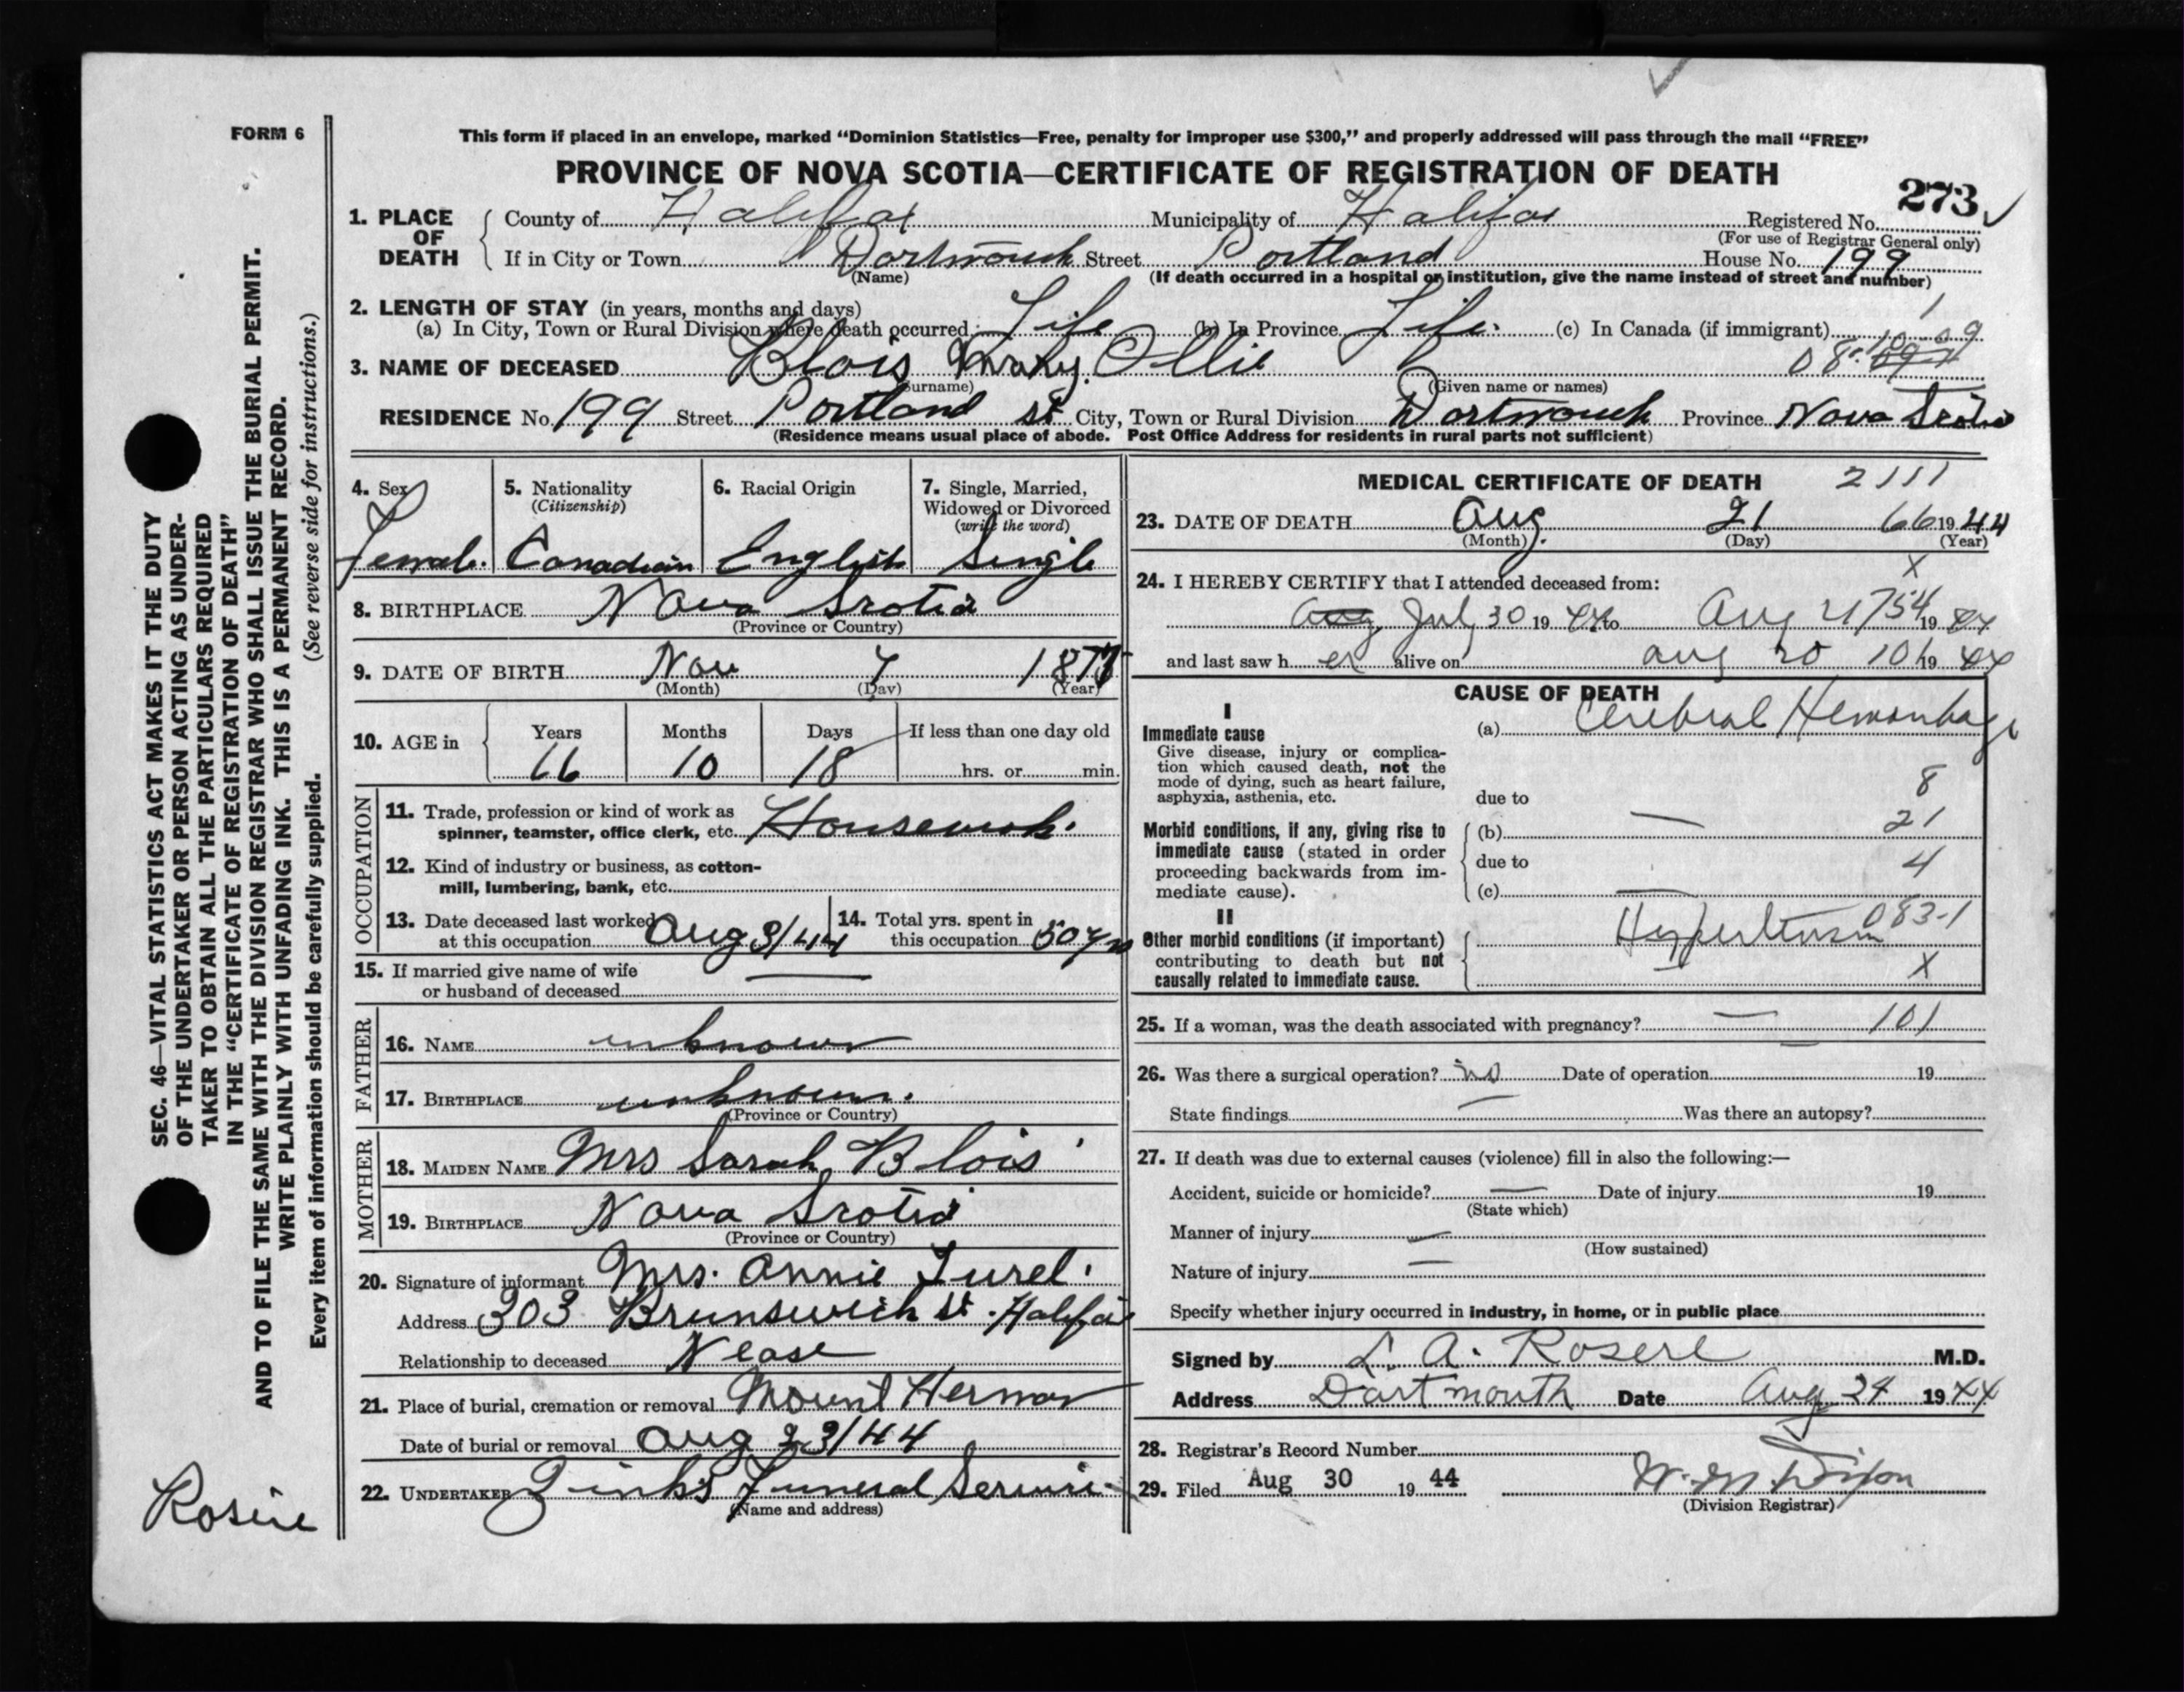 FORM 6
This form if placed in an envelope, marked “Dominion Statistics—Free, penalty for improper use $300,” and properly addressed will pass through the mail “FREE”
PROVINCE OF NOVA SCOTIA—CERTIFICATE OF REGISTRATION OF DEATH
273
1. PLACE OF DEATH County of Halifax Municipality of Halifax Registered No.
(For use of Registrar General only)
If in City or Town Dartmouth Street Portland House No. 199
(Name) (If death occurred in a hospital or institution, give the name instead of street and number)
2. LENGTH OF STAY (in years, months and days)
(a) In City, Town or Rural Division where death occurred Life (b) In Province Life. (c) In Canada (if immigrant)
3. NAME OF DECEASED Blois Mary Ollie
(Surname) (Given name or names)
RESIDENCE No. 199 Street Portland St City, Town or Rural Division Dartmouth Province Nova Scotia
(Residence means usual place of abode. Post Office Address for residents in rural parts not sufficient)
4. Sex Female.
5. Nationality (Citizenship) Canadian
6. Racial Origin English
7. Single, Married, Widowed or Divorced (write the word) Single
8. BIRTHPLACE Nova Scotia
(Province or Country)
9. DATE OF BIRTH Nov 7 187
(Month) (Day) (Year)
10. AGE in Years 66 Months 10 Days 18 If less than one day old hrs. or min.
OCCUPATION
11. Trade, profession or kind of work as
spinner, teamster, office clerk, etc. Housework.
12. Kind of industry or business, as cotton-
mill, lumbering, bank, etc.
13. Date deceased last worked
at this occupation Aug 3/44
14. Total yrs. spent in
this occupation 50 yrs
15. If married give name of wife
or husband of deceased —
FATHER
16. NAME unknown
17. BIRTHPLACE unknown.
(Province or Country)
MOTHER
18. MAIDEN NAME Mrs Sarah Blois
19. BIRTHPLACE Nova Scotia
(Province or Country)
20. Signature of informant Mrs. Annie
Address 303 Brunswick St. Halifax
Relationship to deceased Nease
21. Place of burial, cremation or removal Mount Hermon
Date of burial or removal Aug 23/44
22. UNDERTAKER Zink's Funeral Service
(Name and address)
MEDICAL CERTIFICATE OF DEATH 2111
23. DATE OF DEATH Aug. 21 66 1944
(Month) (Day) (Year)
X
24. I HEREBY CERTIFY that I attended deceased from:
Aug July 30 19 44 to Aug 21 754 19 44
and last saw h er alive on Aug 20 101 19 44
CAUSE OF DEATH
I
Immediate cause
Give disease, injury or complica-
tion which caused death, not the
mode of dying, such as heart failure,
asphyxia, asthenia, etc.
(a) Cerebral Hemorrhage
8
due to
Morbid conditions, if any, giving rise to
immediate cause (stated in order
proceeding backwards from im-
mediate cause).
(b) — 21
due to 4
(c) —
II
Other morbid conditions (if important)
contributing to death but not
causally related to immediate cause.
Hypertension 083-1
X
25. If a woman, was the death associated with pregnancy? — 101
26. Was there a surgical operation? no Date of operation 19
State findings — Was there an autopsy?
27. If death was due to external causes (violence) fill in also the following:—
Accident, suicide or homicide? — Date of injury 19
(State which)
Manner of injury —
(How sustained)
Nature of injury —
Specify whether injury occurred in industry, in home, or in public place
Signed by M.D.
Address Dartmouth Date Aug 24 1944
28. Registrar's Record Number
29. Filed Aug 30 19 44
(Division Registrar)
SEC. 46—VITAL STATISTICS ACT MAKES IT THE DUTY
OF THE UNDERTAKER OR PERSON ACTING AS UNDER-
TAKER TO OBTAIN ALL THE PARTICULARS REQUIRED
IN THE “CERTIFICATE OF REGISTRATION OF DEATH”
AND TO FILE THE SAME WITH THE DIVISION REGISTRAR WHO SHALL ISSUE THE BURIAL PERMIT.
WRITE PLAINLY WITH UNFADING INK. THIS IS A PERMANENT RECORD.
Every item of information should be carefully supplied. (See reverse side for instructions.)